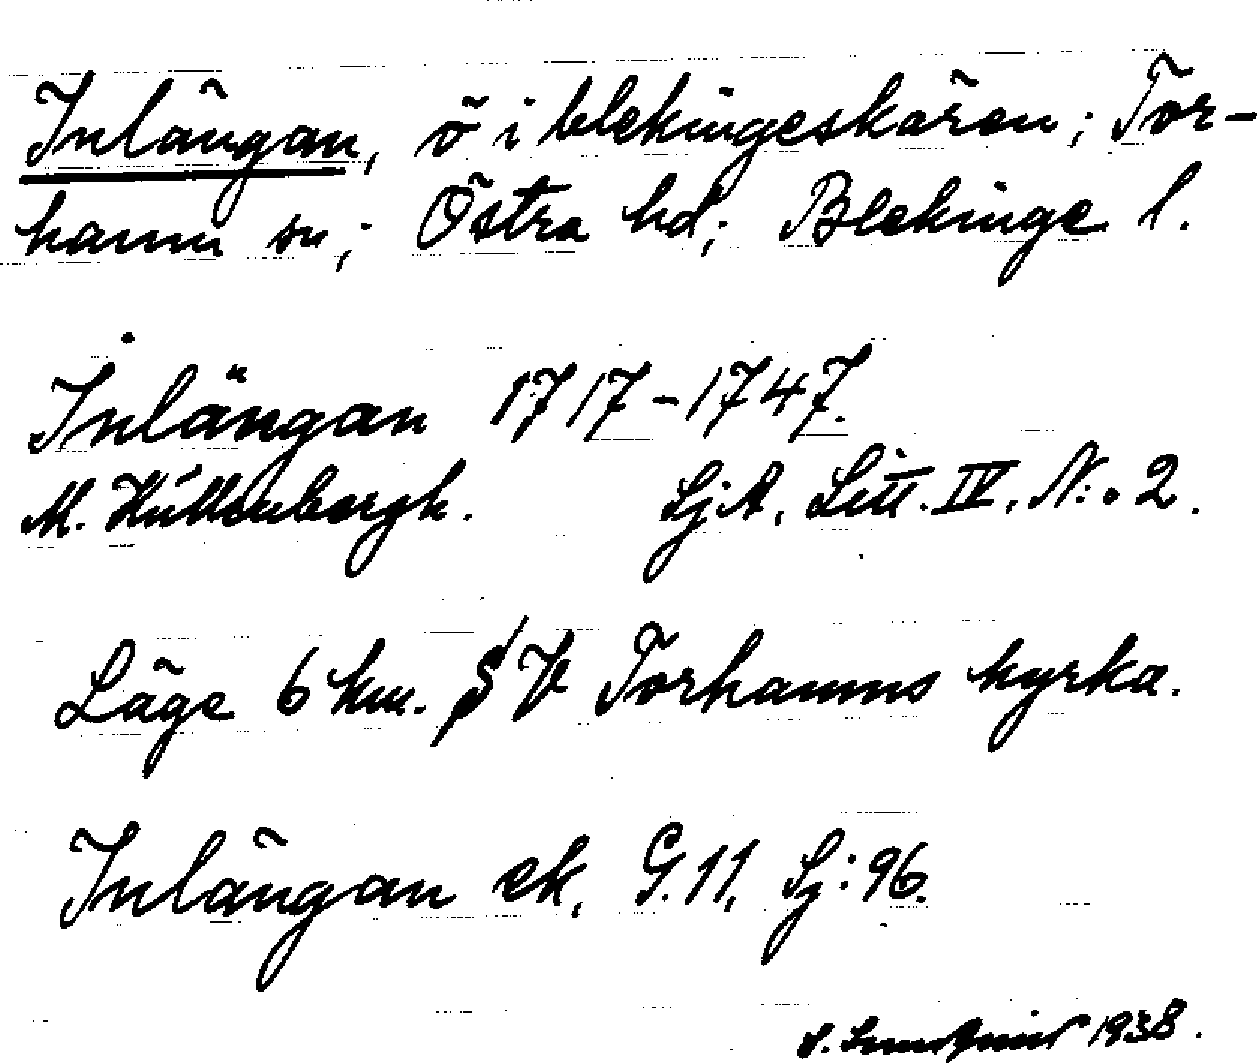 Inlängan, ö i blekingeskären; Tor-
hamn sn; Östra hd; Blekinge l.
Inlängan 1717-1747.
M. Hüllenbergh. SjA, Litt. IV, N:o 2.
Läge 6 km. V Torhamns kyrka.
Inlängan ek, G.11, Sj:96.
1938.